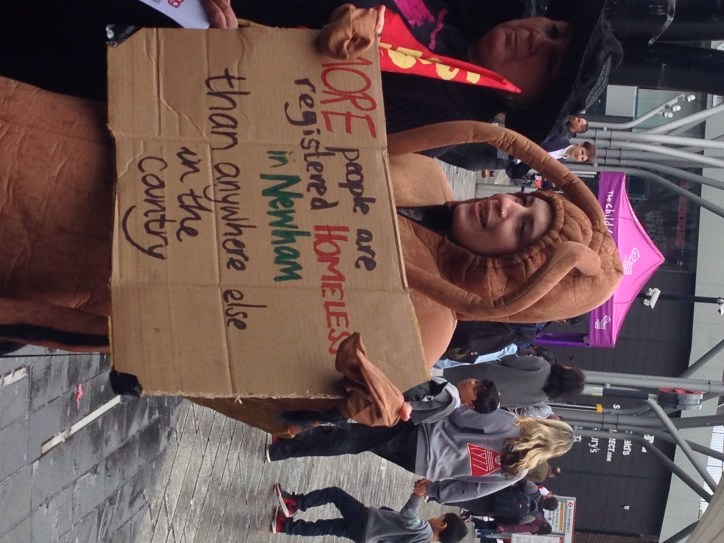 MORE people are
registered HOMELESS
in Newham
than anywhere else
in the
Country